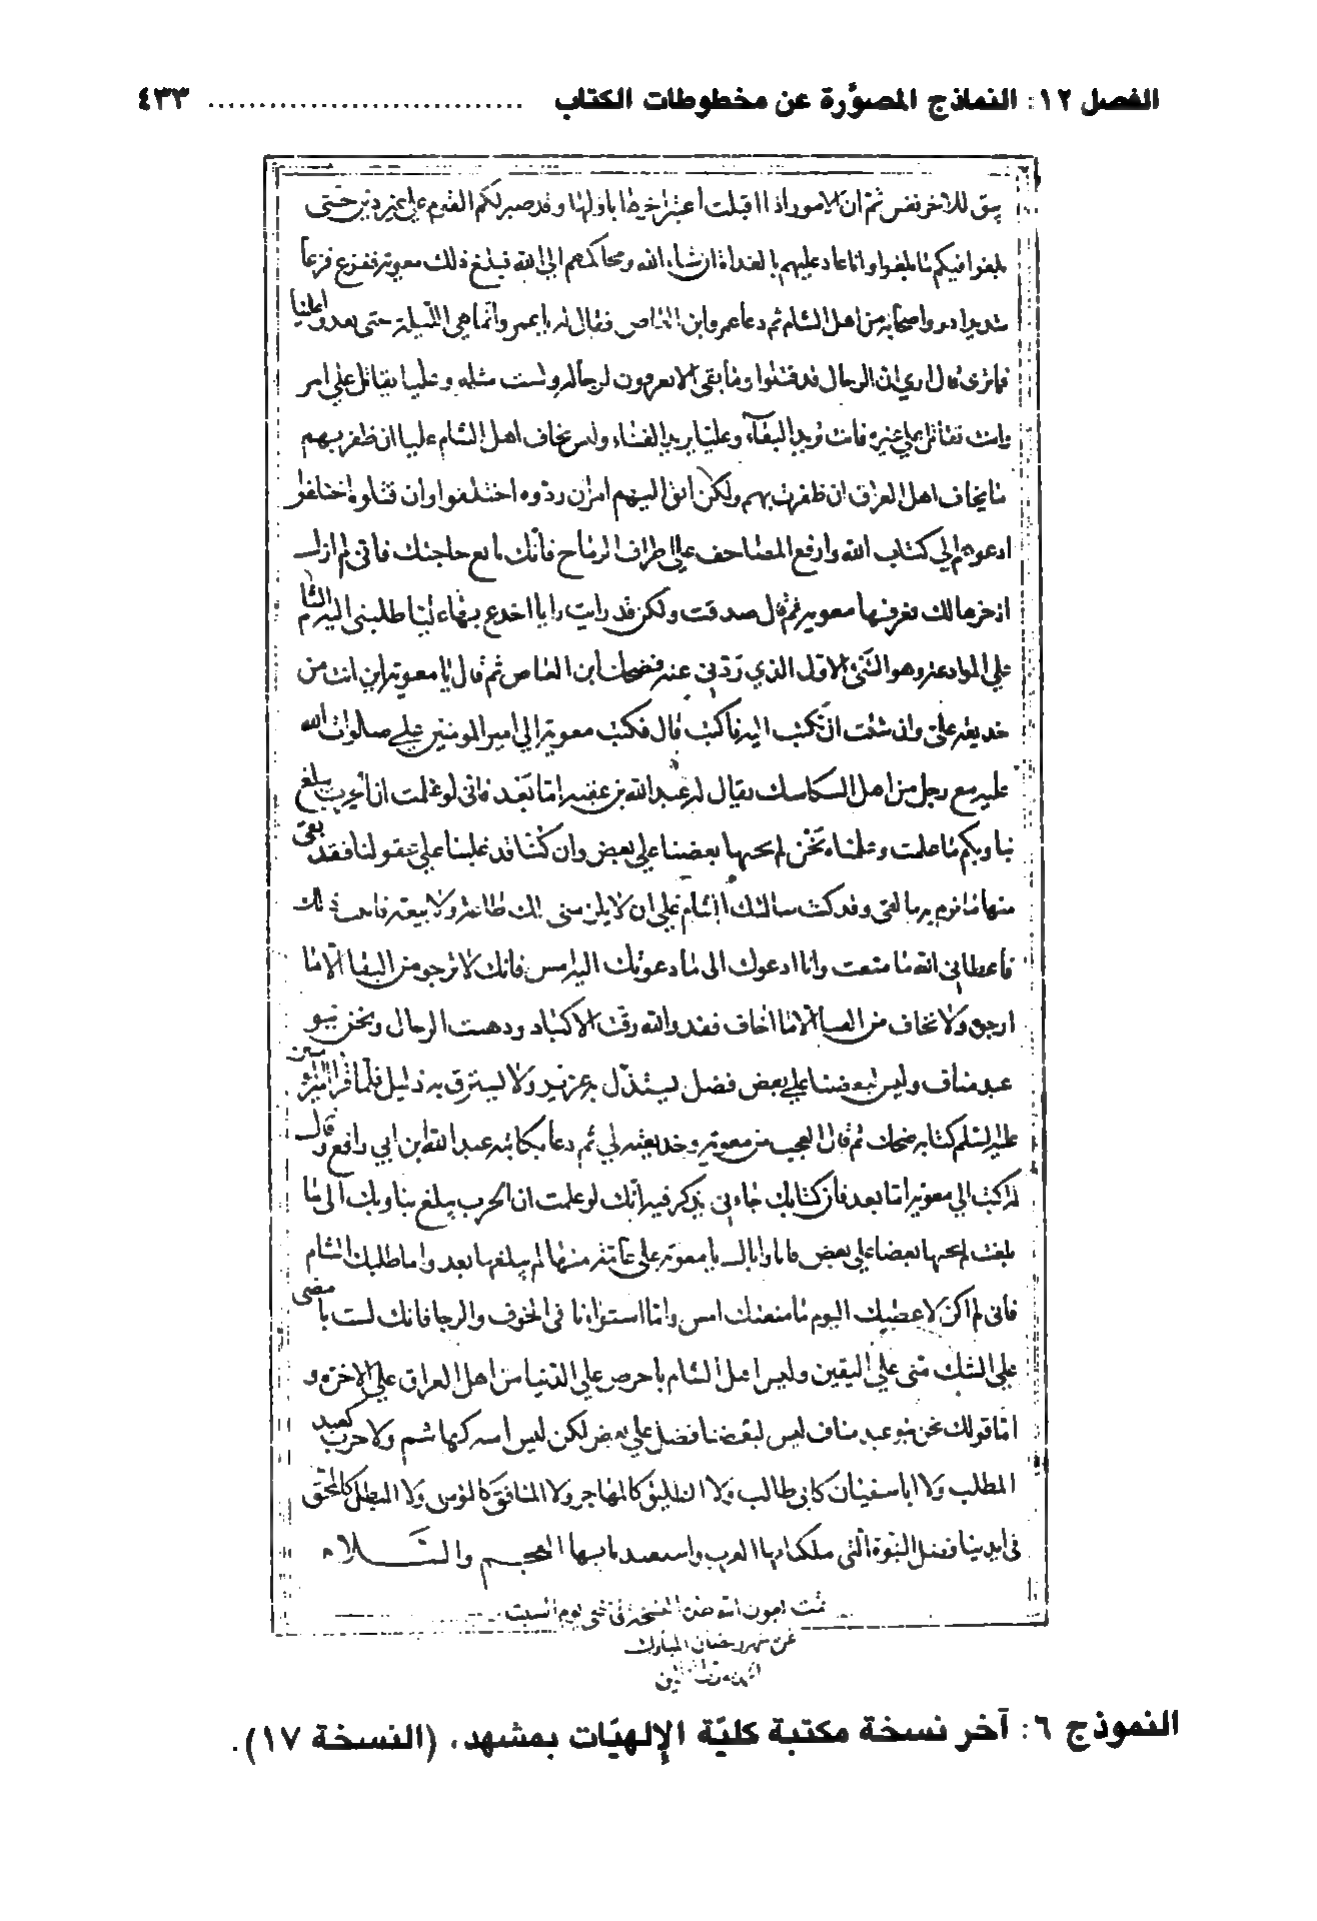 الفصل ١٢: النماذج المصوَّرة عن مخطوطات الكتاب .............................. ٤٣٣
يبق للاخر نفس ثم ان الامور اذا اقبلت اعتبر اخرها باولها وقد صبر لكم القوم على غير دين حتى
بلغوا فيكم ما بلغوا وانا غاد عليهم بالغداة ان شاء الله ومحاكمهم الى الله فبلغ ذلك معوية ففزع فزعا
شديدا هو واصحابه من اهل الشام ثم دعا عمرو ابن العاص فقال له يا عمرو انما هي الليلة حتى يغدوا علينا
فما ترى قال ارى ان الرجال قد قتلوا وما بقى لا يعرفون لرجاله ولست مثله وعليا يقاتل على امر
وانت تقاتل على غيره فانت تريد البقاء وعليا يريد الفناء وليس يخاف اهل الشام عليا ان ظفر بهم
ما يخاف اهل العراق ان ظفرت بهم ولكن الق اليهم امرا ان ردوه اختلفوا وان قبلوه اختلفوا
ادعوهم الى كتاب الله وارفع المصاحف على اطراف الرماح فانك بالغ حاجتك فانى لم ازل
ادخرها لك فعرفها معوية ثم قال صدقت ولكن قد رايت رايا اخدع به عليا طلبنى اليه الشام
على الموادعة وهو الشئ الاول الذي ردني عنه فضحك ابن العاص ثم قال يا معوية اين انت من
خديعة على وان شئت ان تكتب اليه فاكتب قال فكتب معوية الى امير المومنين على صلوات الله
عليه مع رجل من اهل السكاسك يقال له عبد الله بن عقبه اما بعد فانى لو علمت ان الحرب يبلغ
بنا وبكم ما علمت وعلمناه نحن لم يجنها بعضنا على بعض وان كنا قد غلبنا على عقولنا فقد بقى
منها ما نرم به ما بقى وقد كنت سالتك الشام على ان لا يلزمنى لك طاعة ولا بيعة فابيت ذلك
فاعطانى الله ما منعت وانا ادعوك الى ما دعوتك اليه امس فانك لا ترجو من البقا الا ما
ارجو ولا تخاف من الفنا الا ما اخاف فقد والله رقت الاكباد وذهبت الرجال ونحن بنو
عبد مناف وليس لبعضنا على بعض فضل يستذل به عزيز ولا يسترق به ذليل فلما قرا امير المؤمنين
عليه السلم كتابه ضحك ثم قال العجب من معوية وخديعته لي ثم دعا بكاتبه عبد الله ابن ابي رافع وقال
له اكتب الى معوية اما بعد فان كتابك جاءني تذكر فيه انك لو علمت ان الحرب يبلغ بنا وبك الى ما
بلغت لم يجنها بعضنا على بعض فانا واياك يا معوية على غاية منها لم يبلغها بعد واما طلبك الشام
فانى لم اكن لاعطيك اليوم ما منعتك امس واما استوانا فى الخوف والرجا فانك لست بامضى
على الشك منى على اليقين وليس اهل الشام باحرص على الدنيا من اهل العراق على الاخرة و
اما قولك نحن بنو عبد مناف ليس لبعضنا فضل على بعض لكن ليس اميه كهاشم ولا حرب كعبد
المطلب ولا ابا سفيان كابى طالب ولا الطليق كالمهاجر ولا المنافق كالمؤمن ولا المبطل كالمحق
فى ايدينا فضل النبوة التى ملكنا بها العرب واستعبدنا بها العجم والسلام
تمت بعون الله هذه النسخة فى ضحى يوم السبت
من شهر رمضان المبارك
النموذج ٦: آخر نسخة مكتبة كليّة الإلهيّات بمشهد، (النسخة ١٧).